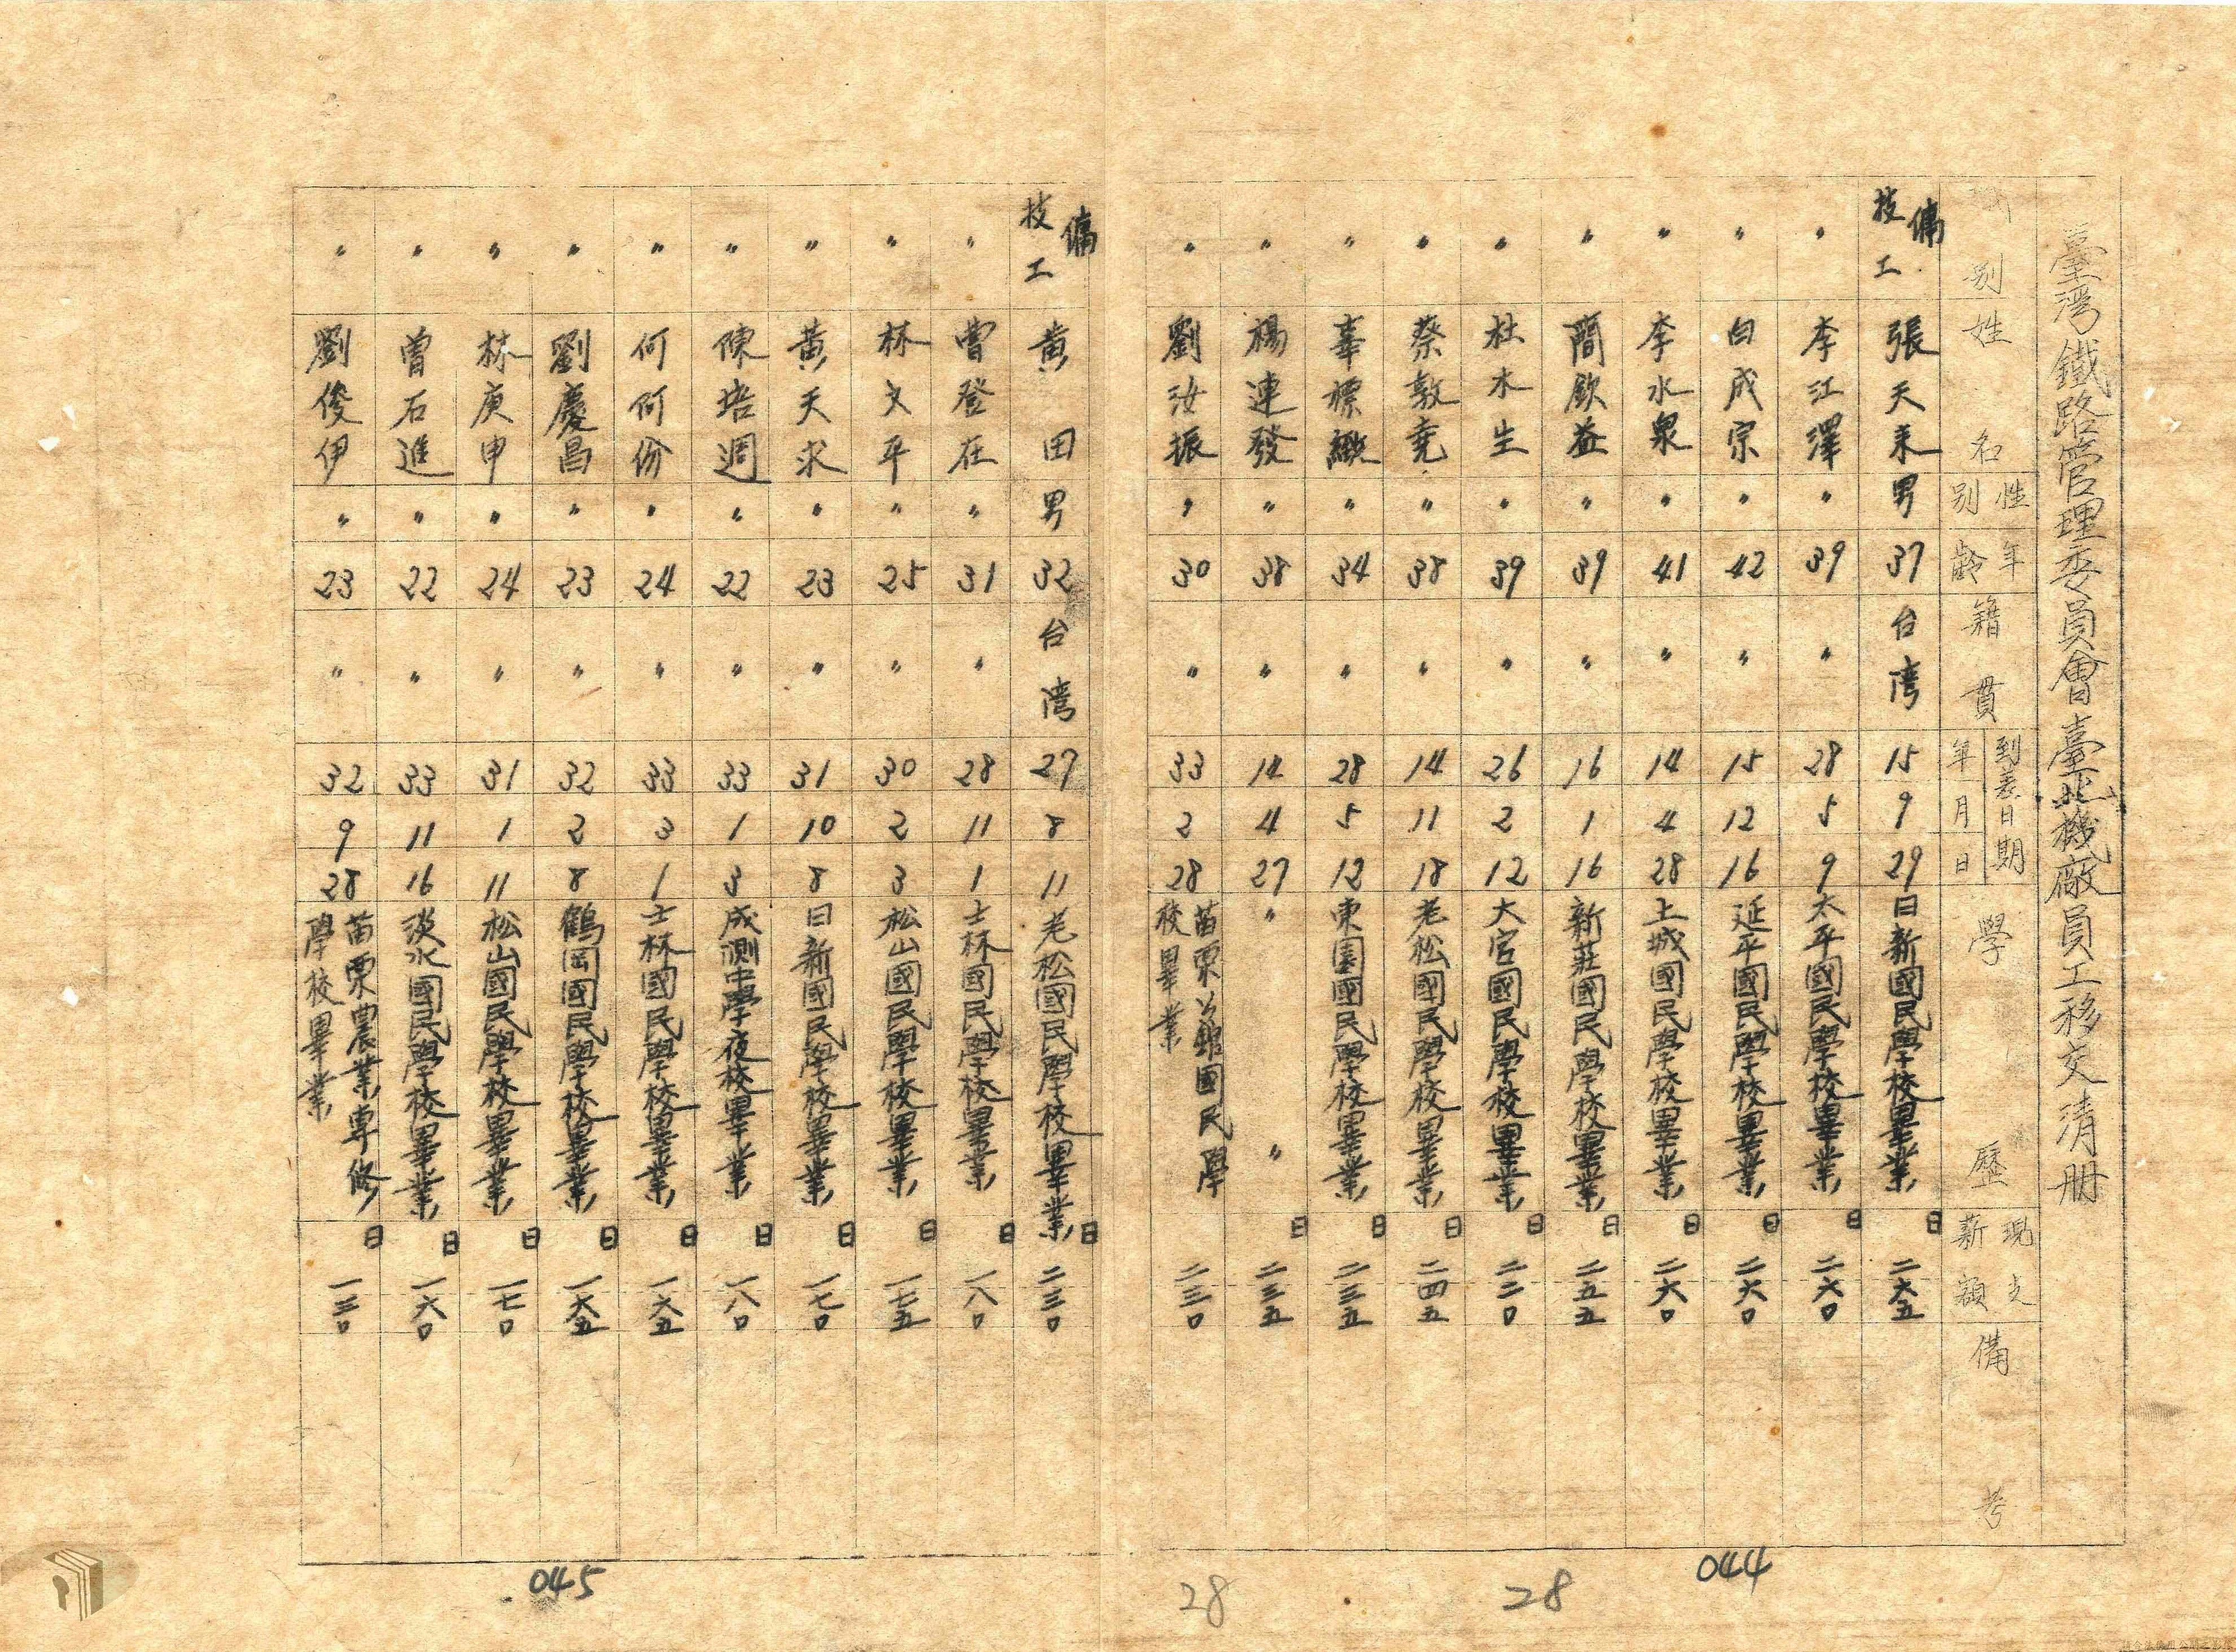 臺灣鐵路管理委員會臺北機廠員工移交清冊
別 姓名 性別 年齡 籍貫 到差日期 年月日 學歷 現支薪額 備考
技工 傭 張天來 男 37 台湾 15 9 29 日新國民學校畢業 日 二六五
〃 李江澤 〃 39 〃 28 5 9 太平國民學校畢業 日 二六〇
〃 白成宗 〃 42 〃 15 12 16 延平國民學校畢業 日 二六〇
〃 李水泉 〃 41 〃 14 4 28 土城國民學校畢業 日 二六〇
〃 簡欽益 〃 39 〃 16 1 16 新莊國民學校畢業 日 二五五
〃 杜木生 〃 39 〃 26 2 12 大宮國民學校畢業 日 二二〇
〃 蔡敦堯 〃 38 〃 14 11 18 老松國民學校畢業 日 二四五
〃 標 〃 34 〃 28 5 12 東園國民學校畢業 日 二三五
〃 楊連發 〃 38 〃 14 4 27 〃 〃 日 二三五
〃 劉汝振 〃 30 〃 33 2 28 苗栗公館國民學校畢業 二三〇
044
28
28
技工 傭 黃田 男 32 台湾 27 8 11 老松國民學校畢業 日 二三〇
〃 曹登在 〃 31 〃 28 11 1 士林國民學校畢業 日 一八〇
〃 林文平 〃 25 〃 30 2 3 松山國民學校畢業 日 一七五
〃 黃天求 〃 23 〃 31 10 8 日新國民學校畢業 日 一七〇
〃 陳培週 〃 22 〃 33 1 3 成淵中學夜校畢業 日 一八〇
〃 何阿份 〃 24 〃 33 3 1 士林國民學校畢業 日 一六五
〃 劉慶昌 〃 23 〃 32 2 8 鶴岡國民學校畢業 日 一六五
〃 林庚申 〃 24 〃 31 1 11 松山國民學校畢業 日 一七〇
〃 曾石進 〃 22 〃 33 11 16 淡水國民學校畢業 日 一六〇
〃 劉俊伊 〃 23 〃 32 9 28 苗栗農業專修學校畢業 日 一三〇
045